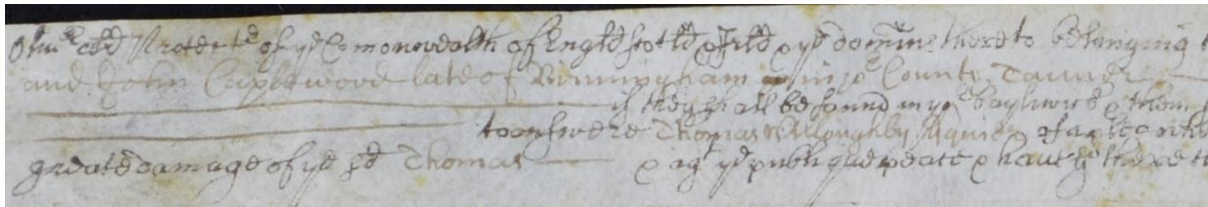 Oliver Lord Protector of ye Comonwealth of Engld Scotld & Irld & ye domins thereto belonging
and John late of Birmingham in ye County Tanner
if they shall be found in yor bayliwick & them
to answere Thomas Willoughby Esquier of a
greate damage of ye sd Thomas & agt ye publique peace & have yu there